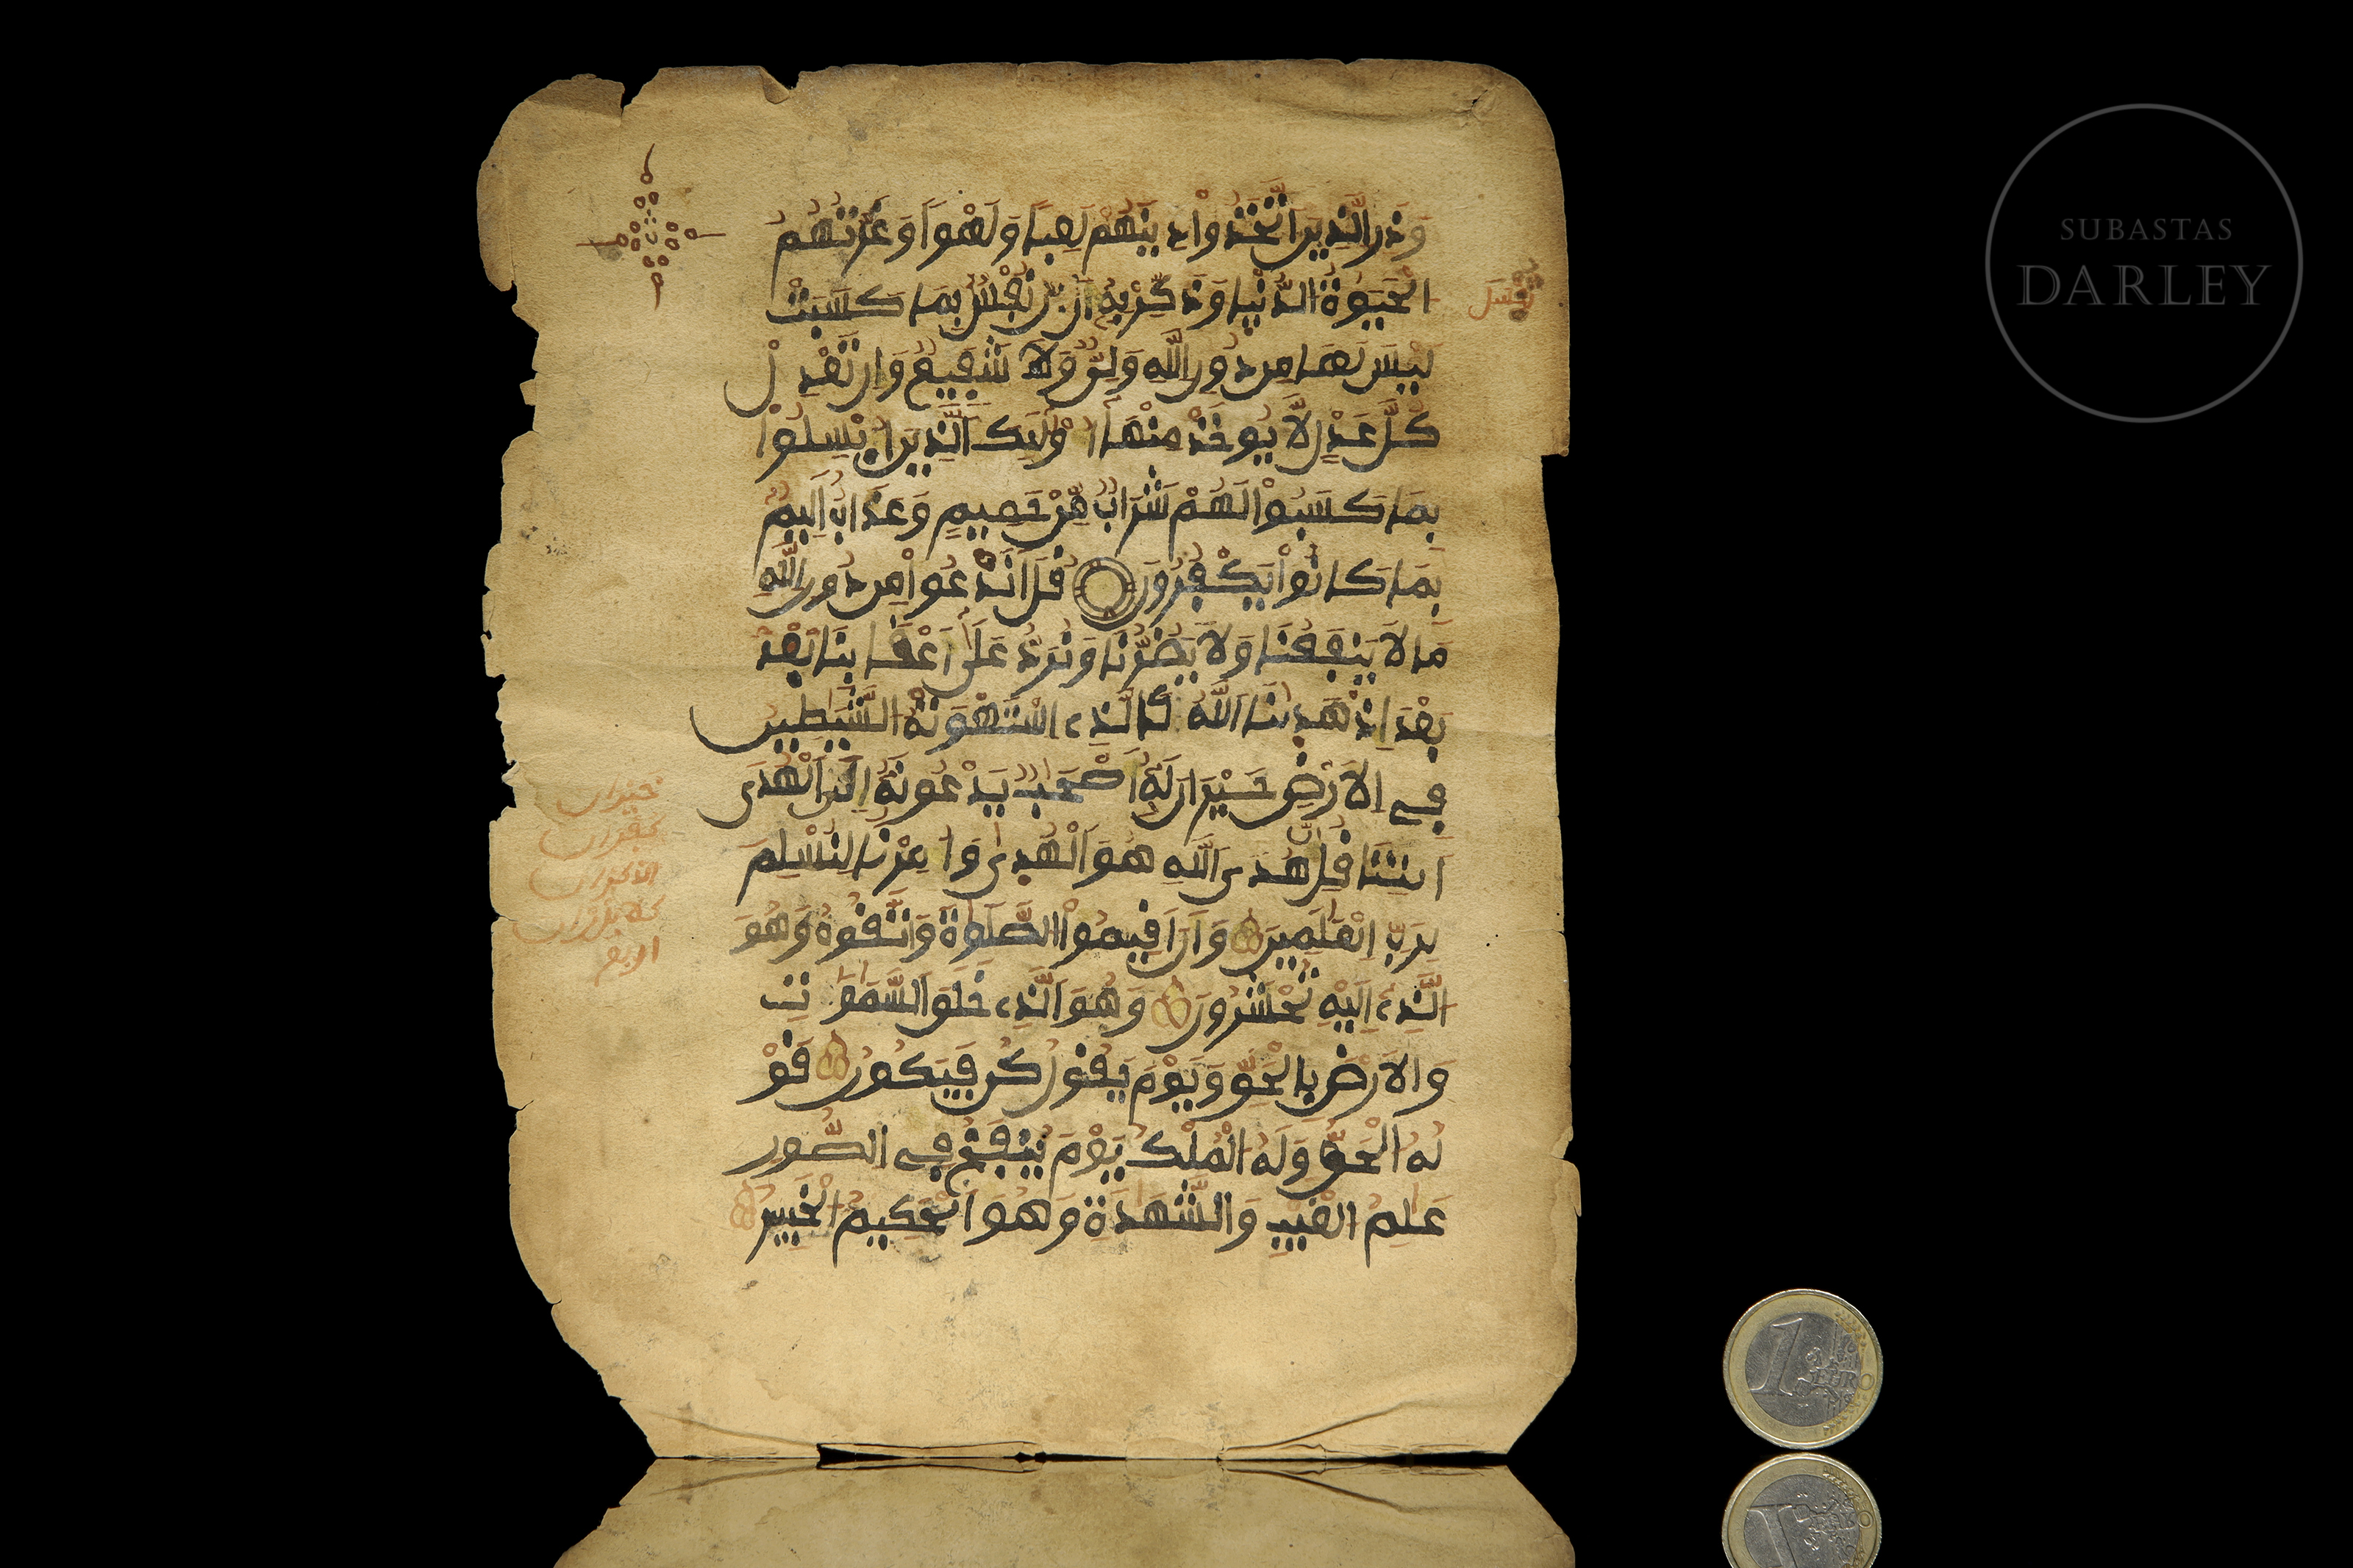 وَذَرِ الَّذِينَ اتَّخَذُواْ دِينَهُمْ لَعِباً وَلَهْواً وَغَرَّتْهُمُ
الْحَيَوٰةُ الدُّنْيَا وَذَكِّرْ بِهِ أَن نَفْسٌ بِمَا كَسَبَتْ
تبسل
لَيْسَ لَهَا مِن دُونِ اللَّهِ وَلِيٌّ وَلَا شَفِيعٌ وَإِن تَعْدِلْ
كُلَّ عَدْلٍ لَّا يُوخَذْ مِنْهَا أُوْلَٰئِكَ الَّذِينَ أُبْسِلُواْ
بِمَا كَسَبُواْ لَهُمْ شَرَابٌ مِّنْ حَمِيمٍ وَعَذَابٌ أَلِيمٌ
بِمَا كَانُواْ يَكْفُرُونَ قُلَ أَنَدْعُواْ مِن دُونِ اللَّهِ
مَا لَا يَنفَعُنَا وَلَا يَضُرُّنَا وَنُرَدُّ عَلَىٰ أَعْقَابِنَا بَعْدَ
بَعْدَ إِذْ هَدَىٰنَا اللَّهُ كَالَّذِي اسْتَهْوَتْهُ الشَّيَٰطِينُ
فِي الَارْضِ حَيْرَانَ لَهُ أَصْحَٰبٌ يَدْعُونَهُ إِلَى الْهُدَى
ايتِنَا قُلِ انَّ هُدَى اللَّهِ هُوَ الْهُدَىٰ وَأُمِرْنَا لِنُسْلِمَ
لِرَبِّ الْعَٰلَمِينَ وَأَنَ أَقِيمُواْ الصَّلَوٰةَ وَاتَّقُوهُ وَهُوَ
الَّذِي إِلَيْهِ تُحْشَرُونَ وَهُوَ الَّذِي خَلَقَ السَّمَٰوَٰتِ
وَالَارْضَ بِالْحَقِّ وَيَوْمَ يَقُولُ كُن فَيَكُونُ قَوْ
لُهُ الْحَقُّ وَلَهُ الْمُلْكُ يَوْمَ يُنفَخُ فِي الصُّورِ
عَٰلِمُ الْغَيْبِ وَالشَّهَٰدَةِ وَهُوَ الْحَكِيمُ الْخَبِيرُ
SUBASTAS
DARLEY
1
EURO